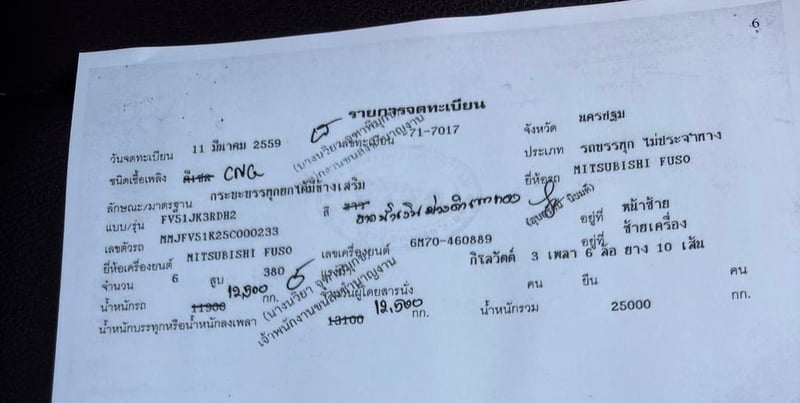 6
รายการจดทะเบียน
วันจดทะเบียน 11 มีนาคม 2559 เลขทะเบียน 71-7017 จังหวัด นครปฐม
ชนิดเชื้อเพลิง ดีเซล CNG ประเภท รถบรรทุก ไม่ประจำทาง
ลักษณะ/มาตรฐาน กระบะบรรทุกยกได้มีข้างเสริม ยี่ห้อรถ MITSUBISHI FUSO
แบบ/รุ่น FV51JK3RDH2 สี ขาว
เลขตัวรถ MMJFV51K25C000233 อยู่ที่ หน้าซ้าย
ยี่ห้อเครื่องยนต์ MITSUBISHI FUSO เลขเครื่องยนต์ 6M70-460889 อยู่ที่ ซ้ายเครื่อง
จำนวน 6 สูบ 380 กิโลวัตต์ 3 เพลา 6 ล้อ ยาง 10 เส้น
น้ำหนักรถ 11900 12,500 กก. จำนวนผู้โดยสารนั่ง คน ยืน คน
น้ำหนักบรรทุกหรือน้ำหนักลงเพลา 13100 12,500 กก. น้ำหนักรวม 25000 กก.
เจ้าพนักงานขนส่งชำนาญงาน